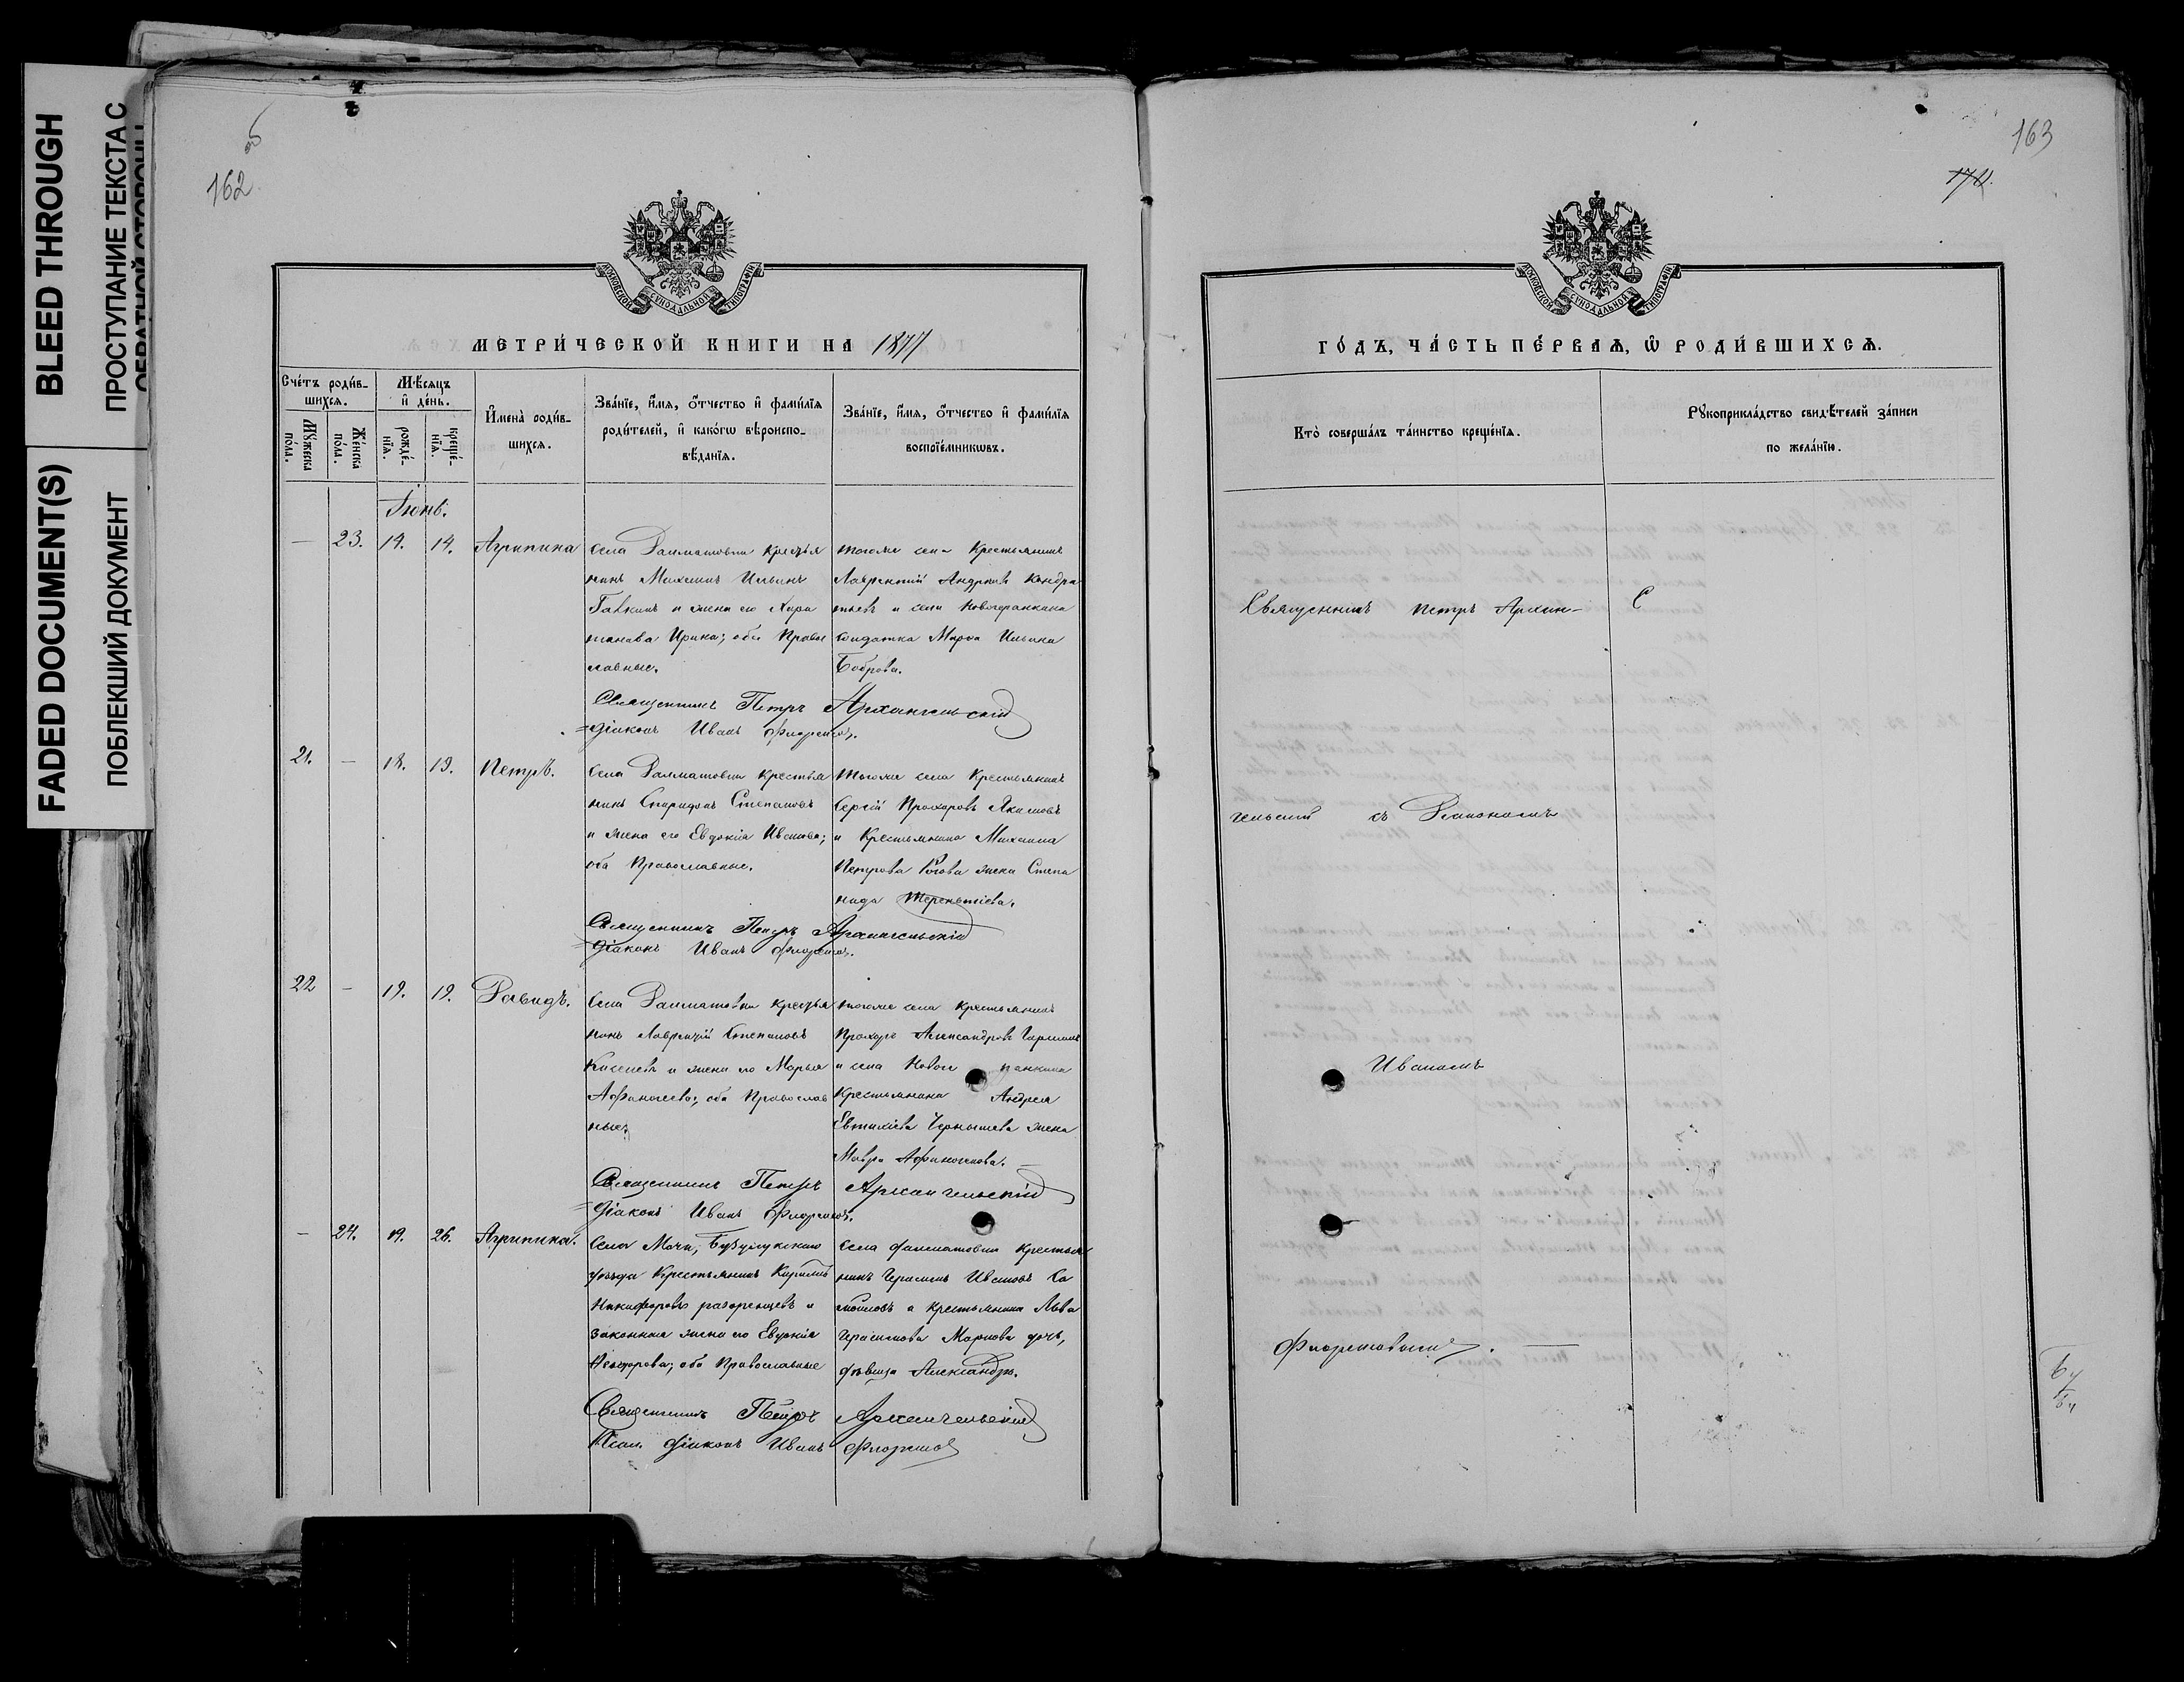 BLEED THROUGH
ПРОСТУПАНИЕ ТЕКСТА С
ОБРАТНОЙ СТОРОНЫ
FADED DOCUMENT(S)
ПОБЛЕКШИЙ ДОКУМЕНТ
об
162
МОСКОВСКОЙ СѴНОДАЛЬНОЙ ТИПОГРАФІИ
МЕТРИ́ЧЕСКОЙ КНИГИ НА 1877
Сче́тъ роди́в-
шихсѧ.
Мꙋ́жеска
по́ла.
Же́нска
по́ла.
Мѣ́сѧцъ
и҆ де́нь.
рожде́-
нїѧ.
креще́-
нїѧ.
И҆мена̀ роди́в-
шихсѧ.
Зва́нїе, и҆́мѧ, ѻ҆́тчество и҆ фами́лїѧ
роди́телей, и҆ како́гѡ вѣроиспо-
вѣ́данїѧ.
Зва́нїе, и҆́мѧ, ѻ҆́тчество и҆ фами́лїѧ
воспрїе́мникѡвъ.
Іюнь.
— 23. 14. 14. Агрипина
Села Далматовки крестья
нинъ Михаилъ Ильинъ
Гавкинъ и жена его Хари
танова Ирина; оба Право
славные.
тогоже села Крестьянинъ
Лаврентий Андреевъ Кондра
тьевъ и села
Солдатка Марѳа Ильина
Боброва.
Священникъ Петръ Архангельскій
Діаконъ Иванъ Флоринов.
21. — 18. 19. Петръ.
Села Далматовки крестья
нинъ Спиридонъ Степановъ
и жена его Евдокія Иванова;
оба Православные.
тогоже села Крестьянинъ
Сергій Прохоровъ Акимовъ
и Крестьянина Михаила
Петрова Рогова жена Степа
нида Терентіева.
Священникъ Петръ Архангельскій
Діаконъ Иванъ
22 — 19. 19. Давидъ.
Села Далматовки крестья
нинъ Лаврентій Степановъ
Киселевъ и жена его Марья
Афанасьева; оба Православ
ные.
тогоже села крестьянинъ
Прохоръ Александровъ
и села Ново нанкина
Крестьянина Андрея
Евтихіева Чернышева жена
Мавра Афиногенова. —
Священникъ Петръ Архангельскій
Діаконъ Иванъ
— 24. 19. 26. Агрипина.
Села Мочи, Бузулукскаго
уѣзда Крестьянинъ Кирилъ
Никифоровъ разоренцевъ и
законная жена его Евдокія
Неофорова; оба Православные
Села Далматовки Крестья
нинъ Герасимъ Ивановъ Са
мойловъ и крестьянина Льва
Герасимова Маркова дочь,
дѣвица Александра.
Священникъ Петръ Архангельскій
Псал. Діаконъ Иванъ
163
МОСКОВСКОЙ СѴНОДАЛЬНОЙ ТИПОГРАФІИ
ГО́ДЪ, ЧА́СТЬ ПЕ́РВАѦ, Ѽ РОДИ́ВШИХСѦ.
Кто̀ соверша́лъ та́инство креще́нїѧ.
Рꙋкоприкла́дство свидѣ́телей за́писи
по жела́нїю.
Священникъ Петръ Архан- С
гельскій съ Діакономъ
Иваномъ